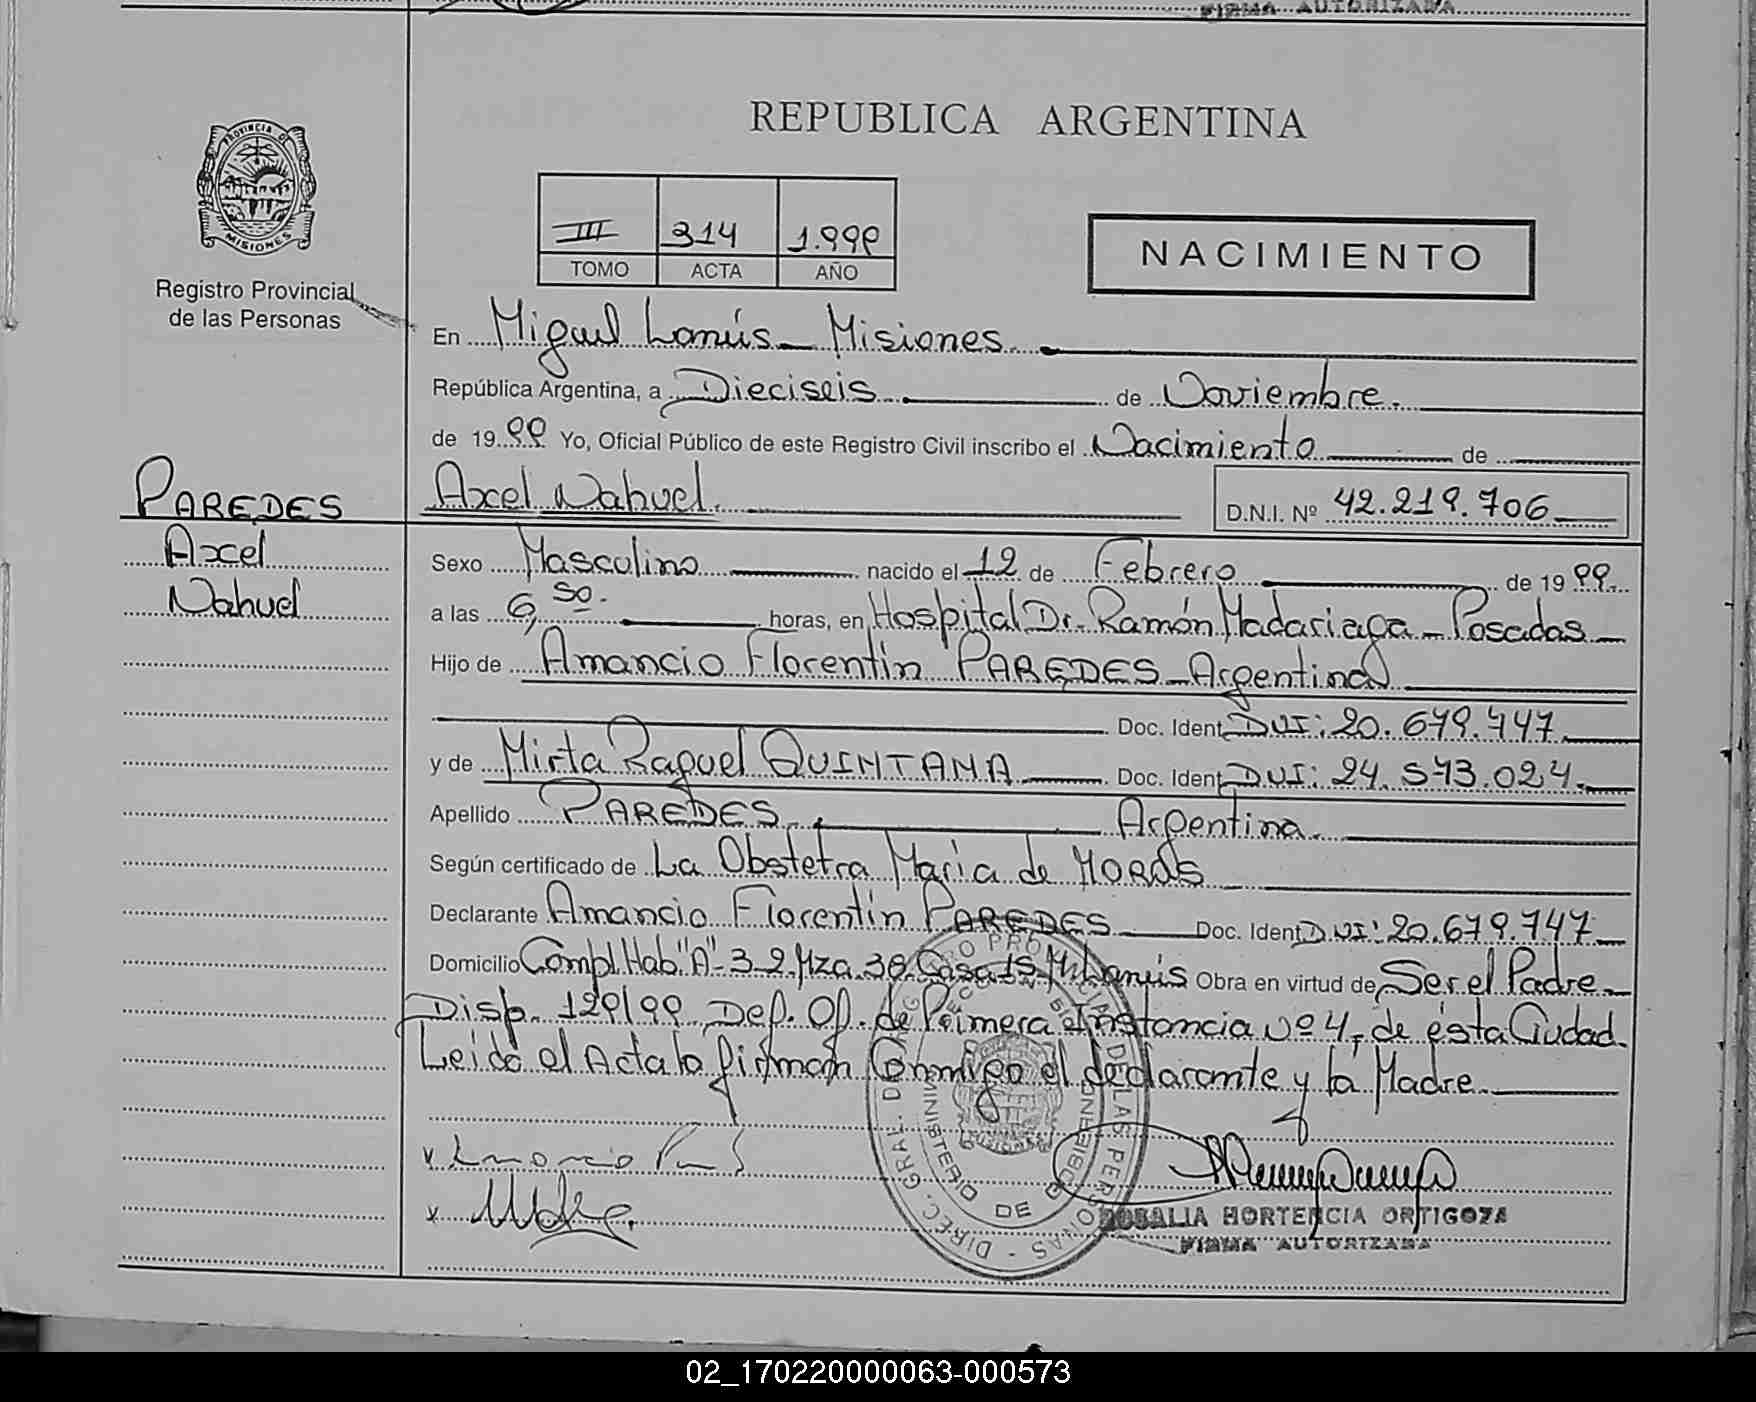 FIRMA AUTORIZADA
REPUBLICA ARGENTINA
PROVINCIA DE
MISIONES
Registro Provincial
de las Personas
III 314 1.999
TOMO ACTA AÑO
NACIMIENTO
En Miguel Lanús - Misiones.
República Argentina, a Dieciseis de Noviembre.
de 1999 Yo, Oficial Público de este Registro Civil inscribo el Nacimiento de
PAREDES
Axel
Nahuel
Axel Nahuel. D.N.I. Nº 42.219.706
Sexo Masculino nacido el 12 de Febrero de 1999.
a las 6,50. horas, en Hospital Dr. Ramón Madariaga - Posadas
Hijo de Amancio Florentín PAREDES - Argentina
Doc. Ident. DNI: 20.679.747
y de Mirta Raquel QUINTANA Doc. Ident. DNI: 24.573.024.
Apellido PAREDES. Argentina.
Según certificado de La Obstetra Maria de
Declarante Amancio Florentín PAREDES Doc. Ident. DNI: 20.679.747
Domicilio Compl. Hab. "A" - 3-2 Mza. 38 Casa 15 M. Lanús Obra en virtud de Ser el Padre
Disp. 129/99 Def. Of. de Primera Instancia Nº 4, de ésta Ciudad.
Leida el Acta la firman Conmigo el declarante y la Madre
DIREC. GRAL. DEL REGISTRO PROVINCIAL DE LAS PERSONAS
MINISTERIO DE GOBIERNO
x Amancio
x
ROSALIA HORTENCIA ORTIGOZA
FIRMA AUTORIZADA
02_170220000063-000573